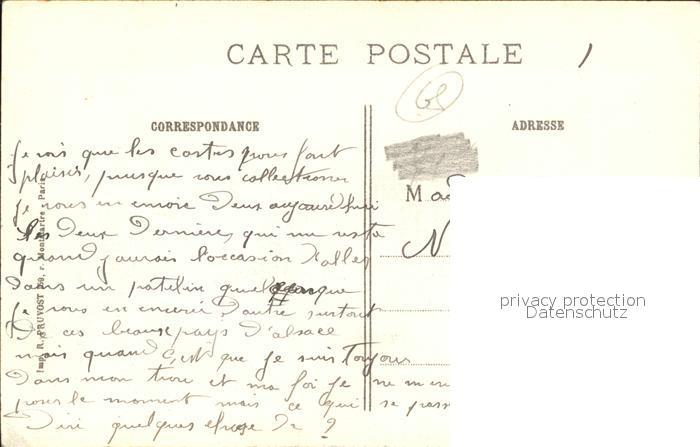 CARTE POSTALE
68
CORRESPONDANCE
ADRESSE
Je vois que les cartes vous font
plaisir, puisque vous collectionner
Je vous en envoie Deux aujourd'hui
Les Deux Dernière, qui me reste
quand j'aurais l'occasion D'aller
Dans un patelin quelquonque
Je vous en enverai D'autre surtout
De ces beaux pays d'alsace
mais quand c'est que je suis Toujour
Dans mon trou et ma foi je ne m'en
pour le moment mais ce qui se pass
Dire quelques chose De ?
Mad
N
Imp. R. PRUVOST 59, r. Montmartre - Paris
privacy protection
Datenschutz